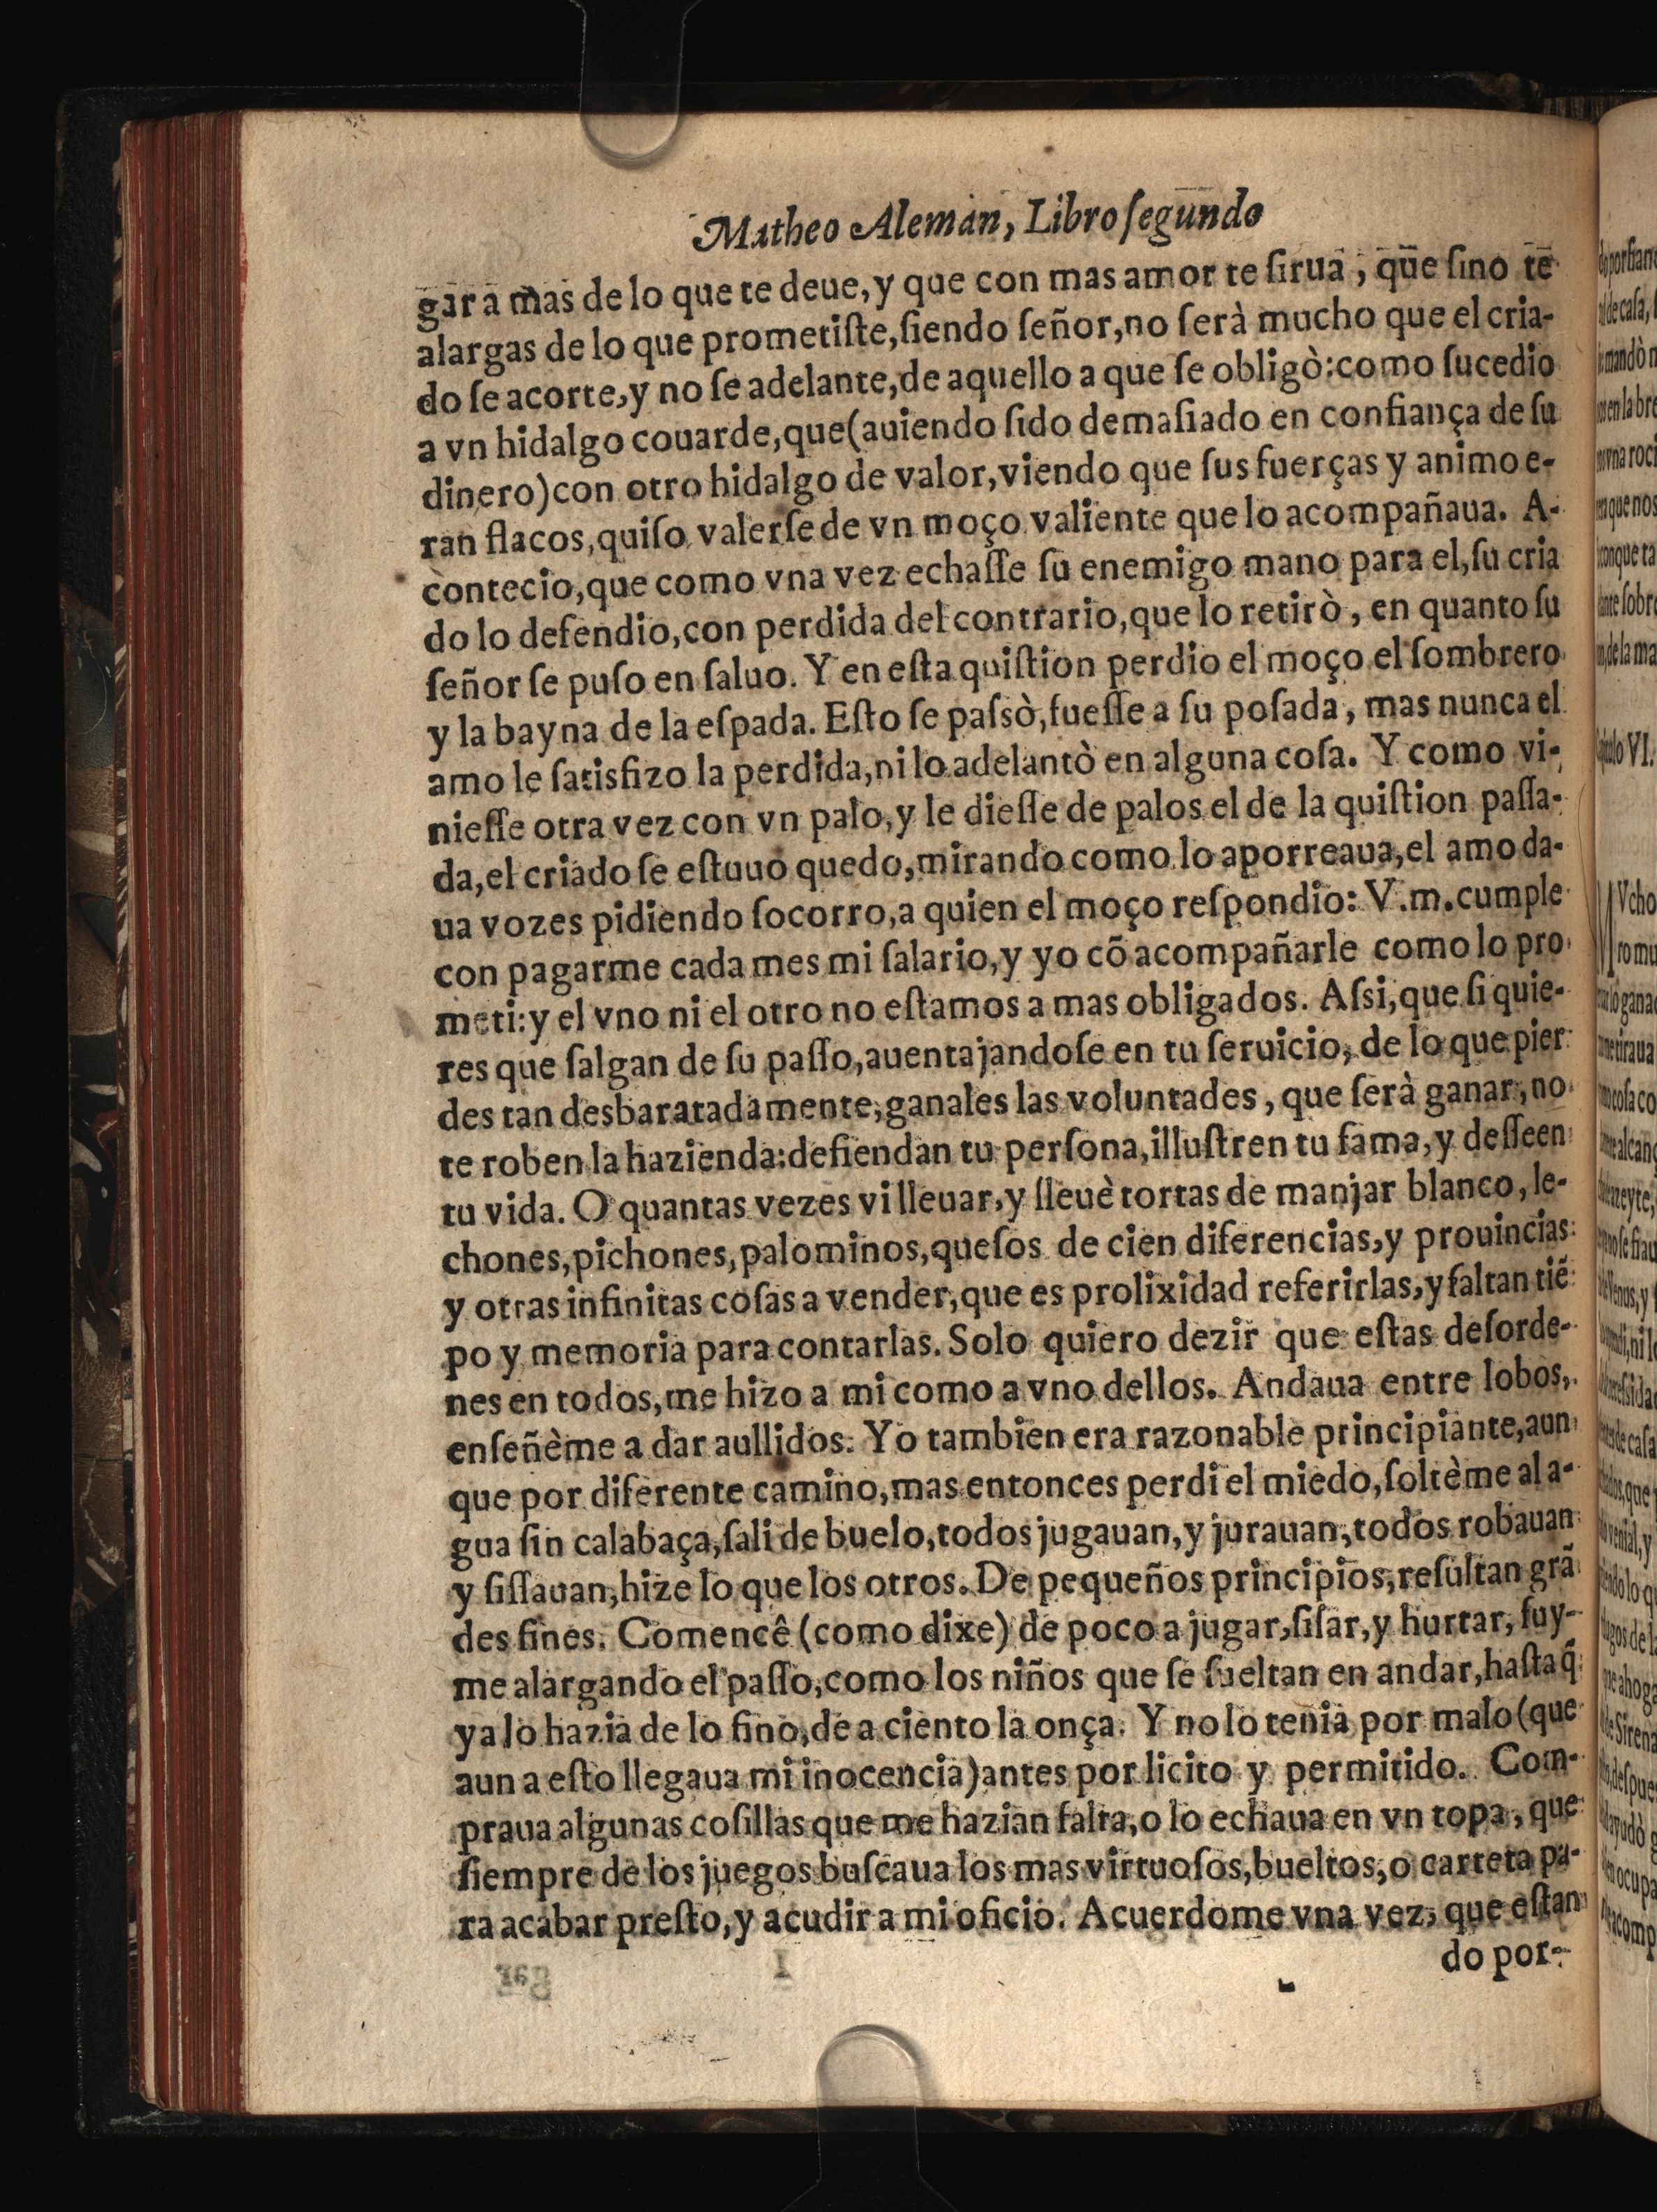 Matheo Aleman, Libro ſegundo
gar a mas de lo que te deue, y que con mas amor te ſirua, que ſino te
alargas de lo que prometiſte, ſiendo ſeñor, no ſerà mucho que el cria-
do ſe acorte, y no ſe adelante, de aquello a que ſe obligò: como ſucedio
a vn hidalgo couarde, que (auiendo ſido demaſiado en confiança de ſu
dinero) con otro hidalgo de valor, viendo que ſus fuerças y animo e-
ran flacos, quiſo valerſe de vn moço valiente que lo acompañaua. A-
contecio, que como vna vez echaſſe ſu enemigo mano para el, ſu cria
do lo defendio, con perdida del contrario, que lo retirò, en quanto ſu
ſeñor ſe puſo en ſaluo. Y en eſta quiſtion perdio el moço el ſombrero
y la bayna de la eſpada. Eſto ſe paſsò, fueſſe a ſu poſada, mas nunca el
amo le ſatisfizo la perdida, ni lo adelantò en alguna coſa. Y como vi-
nieſſe otra vez con vn palo, y le dieſſe de palos el de la quiſtion paſſa-
da, el criado ſe eſtuuo quedo, mirando como lo aporreaua, el amo da-
ua vozes pidiendo ſocorro, a quien el moço reſpondio: V.m. cumple
con pagarme cada mes mi ſalario, y yo cõ acompañarle como lo pro
meti: y el vno ni el otro no eſtamos a mas obligados. Aſsi, que ſi quie-
res que ſalgan de ſu paſſo, auentajandoſe en tu ſeruicio, de lo que pier
des tan desbaratadamente, ganales las voluntades, que ſerà ganar, no
te roben la hazienda: defiendan tu perſona, illuſtren tu fama, y deſſeen
tu vida. O quantas vezes vi lleuar, y lleuè tortas de manjar blanco, le-
chones, pichones, palominos, queſos de cien diferencias, y prouincias
y otras infinitas coſas a vender, que es prolixidad referirlas, y faltan tiẽ
po y memoria para contarlas. Solo quiero dezir que eſtas deſorde-
nes en todos, me hizo a mi como a vno dellos. Andaua entre lobos,
enſeñème a dar aullidos. Yo tambien era razonable principiante, aun
que por diferente camino, mas entonces perdi el miedo, ſoltème al a-
gua ſin calabaça, ſali de buelo, todos jugauan, y jurauan, todos robauan
y ſiſſauan, hize lo que los otros. De pequeños principios, reſultan grã
des fines. Comencê (como dixe) de poco a jugar, ſiſar, y hurtar, fuy-
me alargando el paſſo, como los niños que ſe ſueltan en andar, haſta q̃
ya lo hazia de lo fino, de a ciento la onça. Y no lo tenia por malo (que
aun a eſto llegaua mi inocencia) antes por licito y permitido. Com-
praua algunas coſillas que me hazian falta, o lo echaua en vn topa, que
ſiempre de los juegos buſcaua los mas virtuoſos, bueltos, o carteta pa-
ra acabar preſto, y acudir a mi oficio. Acuerdome vna vez, que eſtan
do por-